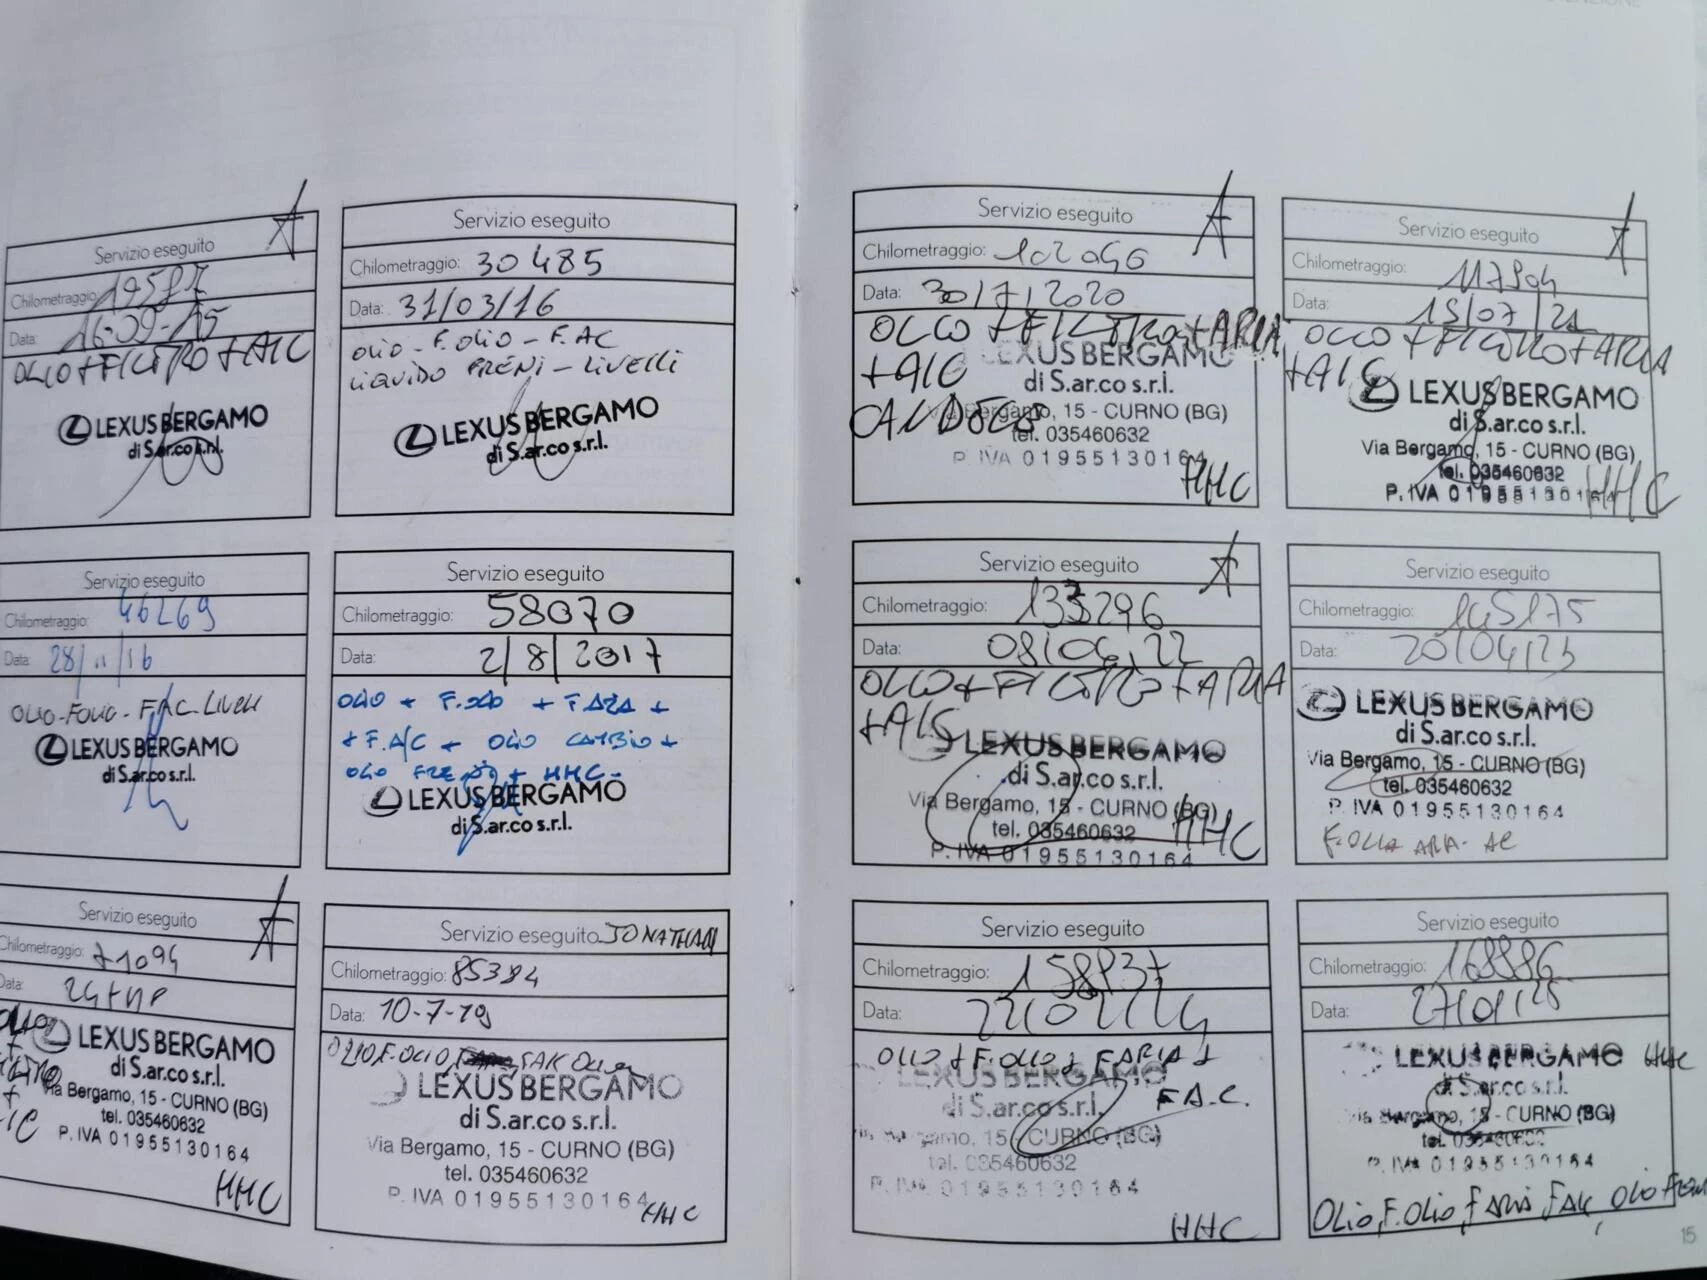 Servizio eseguito
Chilometraggio:
Data: 16-09-15
OLIO + FILTRO + A/C
LEXUS BERGAMO
di S.ar.co s.r.l.
Servizio eseguito
Chilometraggio: 30485
Data: 31/03/16
OLIO - F.OLIO - F.AC
LIQUIDO FRENI - LIVELLI
LEXUS BERGAMO
di S.ar.co s.r.l.
Servizio eseguito
Chilometraggio: 46269
Data: 28/11/16
OLIO-FOLIO-F.AC.LIVELLI
LEXUS BERGAMO
di S.ar.co s.r.l.
Servizio eseguito
Chilometraggio: 58070
Data: 2/8/2017
OLIO + F.OLIO + F ARIA +
+ F.A/C + OLIO CAMBIO +
OLIO FRENI + HHC.
LEXUS BERGAMO
di S.ar.co s.r.l.
Servizio eseguito
Chilometraggio: 71094
Data:
OLIO
LEXUS BERGAMO
di S.ar.co s.r.l.
Via Bergamo, 15 - CURNO (BG)
tel. 035460632
P. IVA 01955130164
HHC
Servizio eseguito JONATHAN
Chilometraggio: 85384
Data: 10-7-19
OLIO F.OLIO
LEXUS BERGAMO
di S.ar.co s.r.l.
Via Bergamo, 15 - CURNO (BG)
tel. 035460632
P. IVA 01955130164
HHC
Servizio eseguito
Chilometraggio: 102046
Data: 30/7/2020
OLIO + FILTRO + ARIA
+ A/C
LEXUS BERGAMO
di S.ar.co s.r.l.
CANDELE
Via Bergamo, 15 - CURNO (BG)
tel. 035460632
P. IVA 01955130164
HHC
Servizio eseguito
Chilometraggio: 117904
Data: 15/07/21
OLIO + FILTRO + ARIA
+ A/C
LEXUS BERGAMO
di S.ar.co s.r.l.
Via Bergamo, 15 - CURNO (BG)
tel. 035460632
P. IVA 01955130164
HHC
Servizio eseguito
Chilometraggio: 133296
Data: 08/04/22
OLIO + FILTRO + ARIA
+ A/C
LEXUS BERGAMO
di S.ar.co s.r.l.
Via Bergamo, 15 - CURNO (BG)
tel. 035460632
P. IVA 01955130164
HHC
Servizio eseguito
Chilometraggio: 145175
Data: 20/04/23
LEXUS BERGAMO
di S.ar.co s.r.l.
Via Bergamo, 15 - CURNO (BG)
tel. 035460632
P. IVA 01955130164
F.OLIO ARIA - AC
Servizio eseguito
Chilometraggio: 158837
Data: 22/02/24
OLIO + F.OLIO + F ARIA +
F.A.C.
LEXUS BERGAMO
di S.ar.co s.r.l.
Via Bergamo, 15 - CURNO (BG)
tel. 035460632
P. IVA 01955130164
HHC
Servizio eseguito
Chilometraggio: 168886
Data: 27/01/25
LEXUS BERGAMO HHC
di S.ar.co s.r.l.
Via Bergamo, 15 - CURNO (BG)
tel. 035460632
P. IVA 01955130164
OLIO, F.OLIO, F ARIA, OLIO FRENI
15